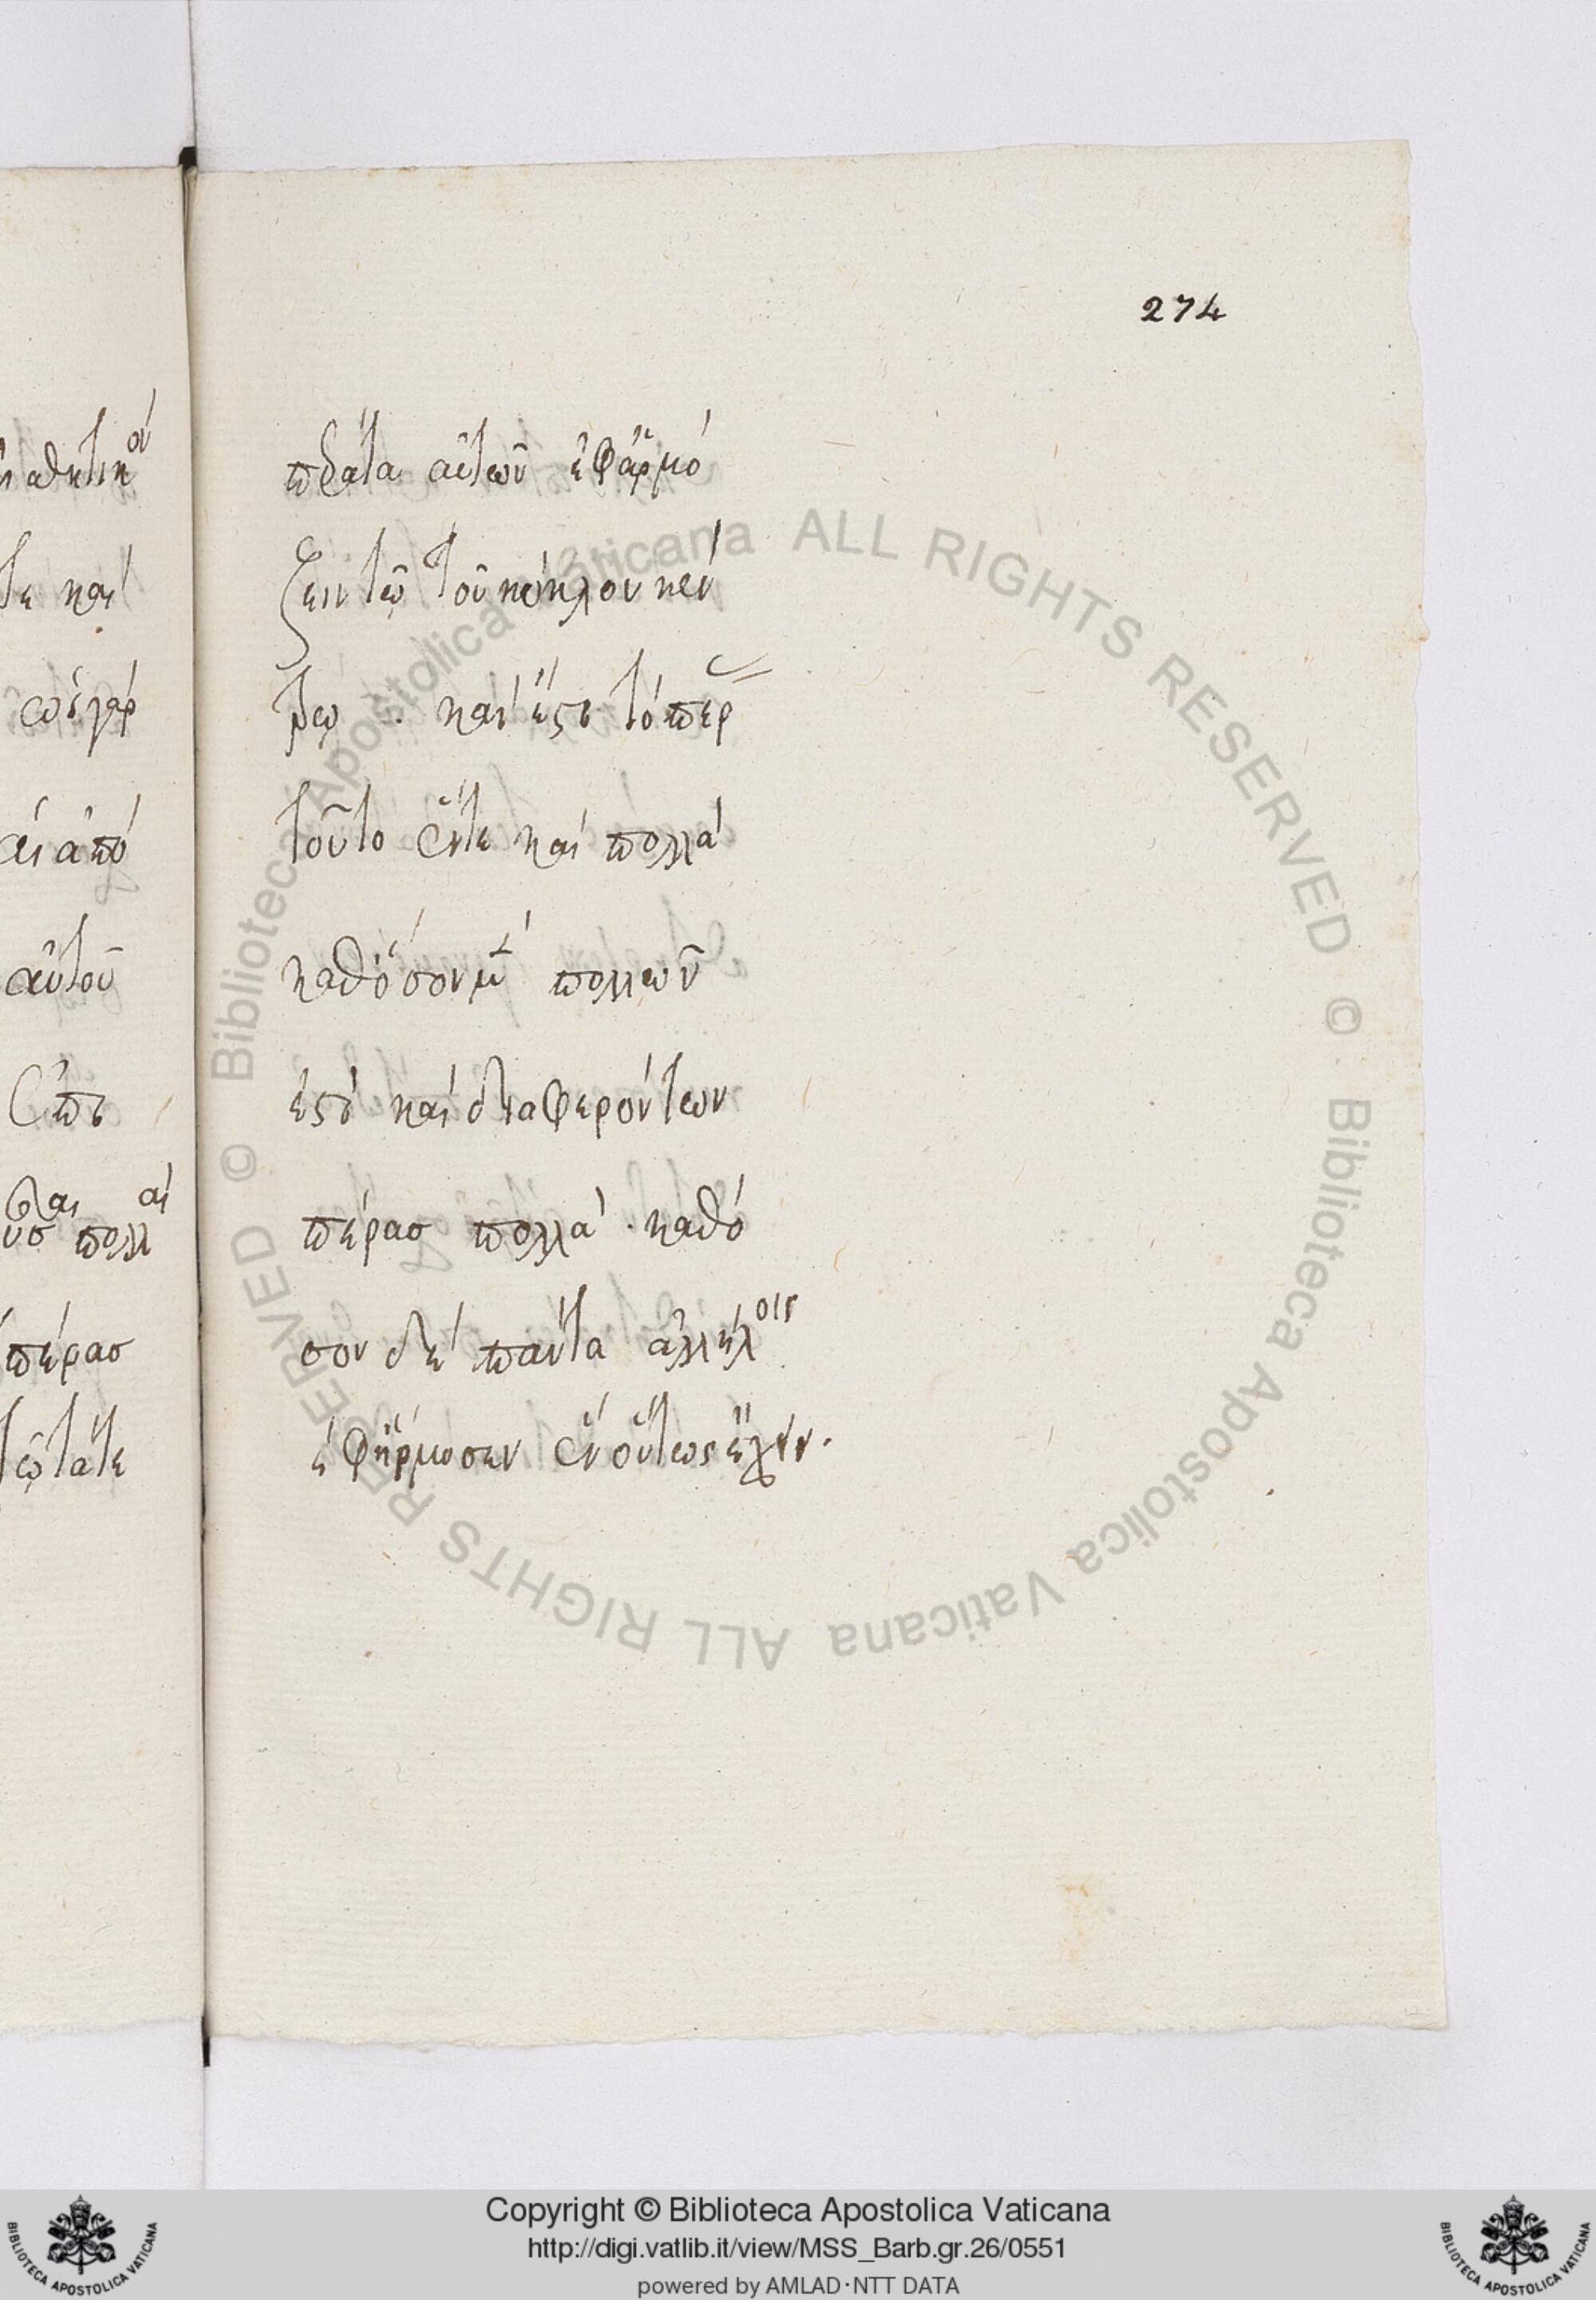 274
πέρατα αὐτῶν ἐφαρμό
ζειν τῷ τοῦ κύκλου κέν
τρῳ . καὶ ἔστι τὸ πέρ
τοῦτο ἕν τε καὶ πολλὰ
καθόσον μὲν πολλῶν
ἐστὶ καὶ διαφερόντων
πέρασ πολλὰ . καθό
σον δὲ πάντα ἀλλήλοις
ἐφήρμοσεν ἓν οὕτως ἔχειν.
αὐτοῦ
πέρασ
Biblioteca Apostolica Vaticana ALL RIGHTS RESERVED ©
Biblioteca Apostolica Vaticana ALL RIGHTS RESERVED ©
Copyright © Biblioteca Apostolica Vaticana
http://digi.vatlib.it/view/MSS_Barb.gr.26/0551
powered by AMLAD·NTT DATA
BIBLIOTECA APOSTOLICA VATICANA
BIBLIOTECA APOSTOLICA VATICANA